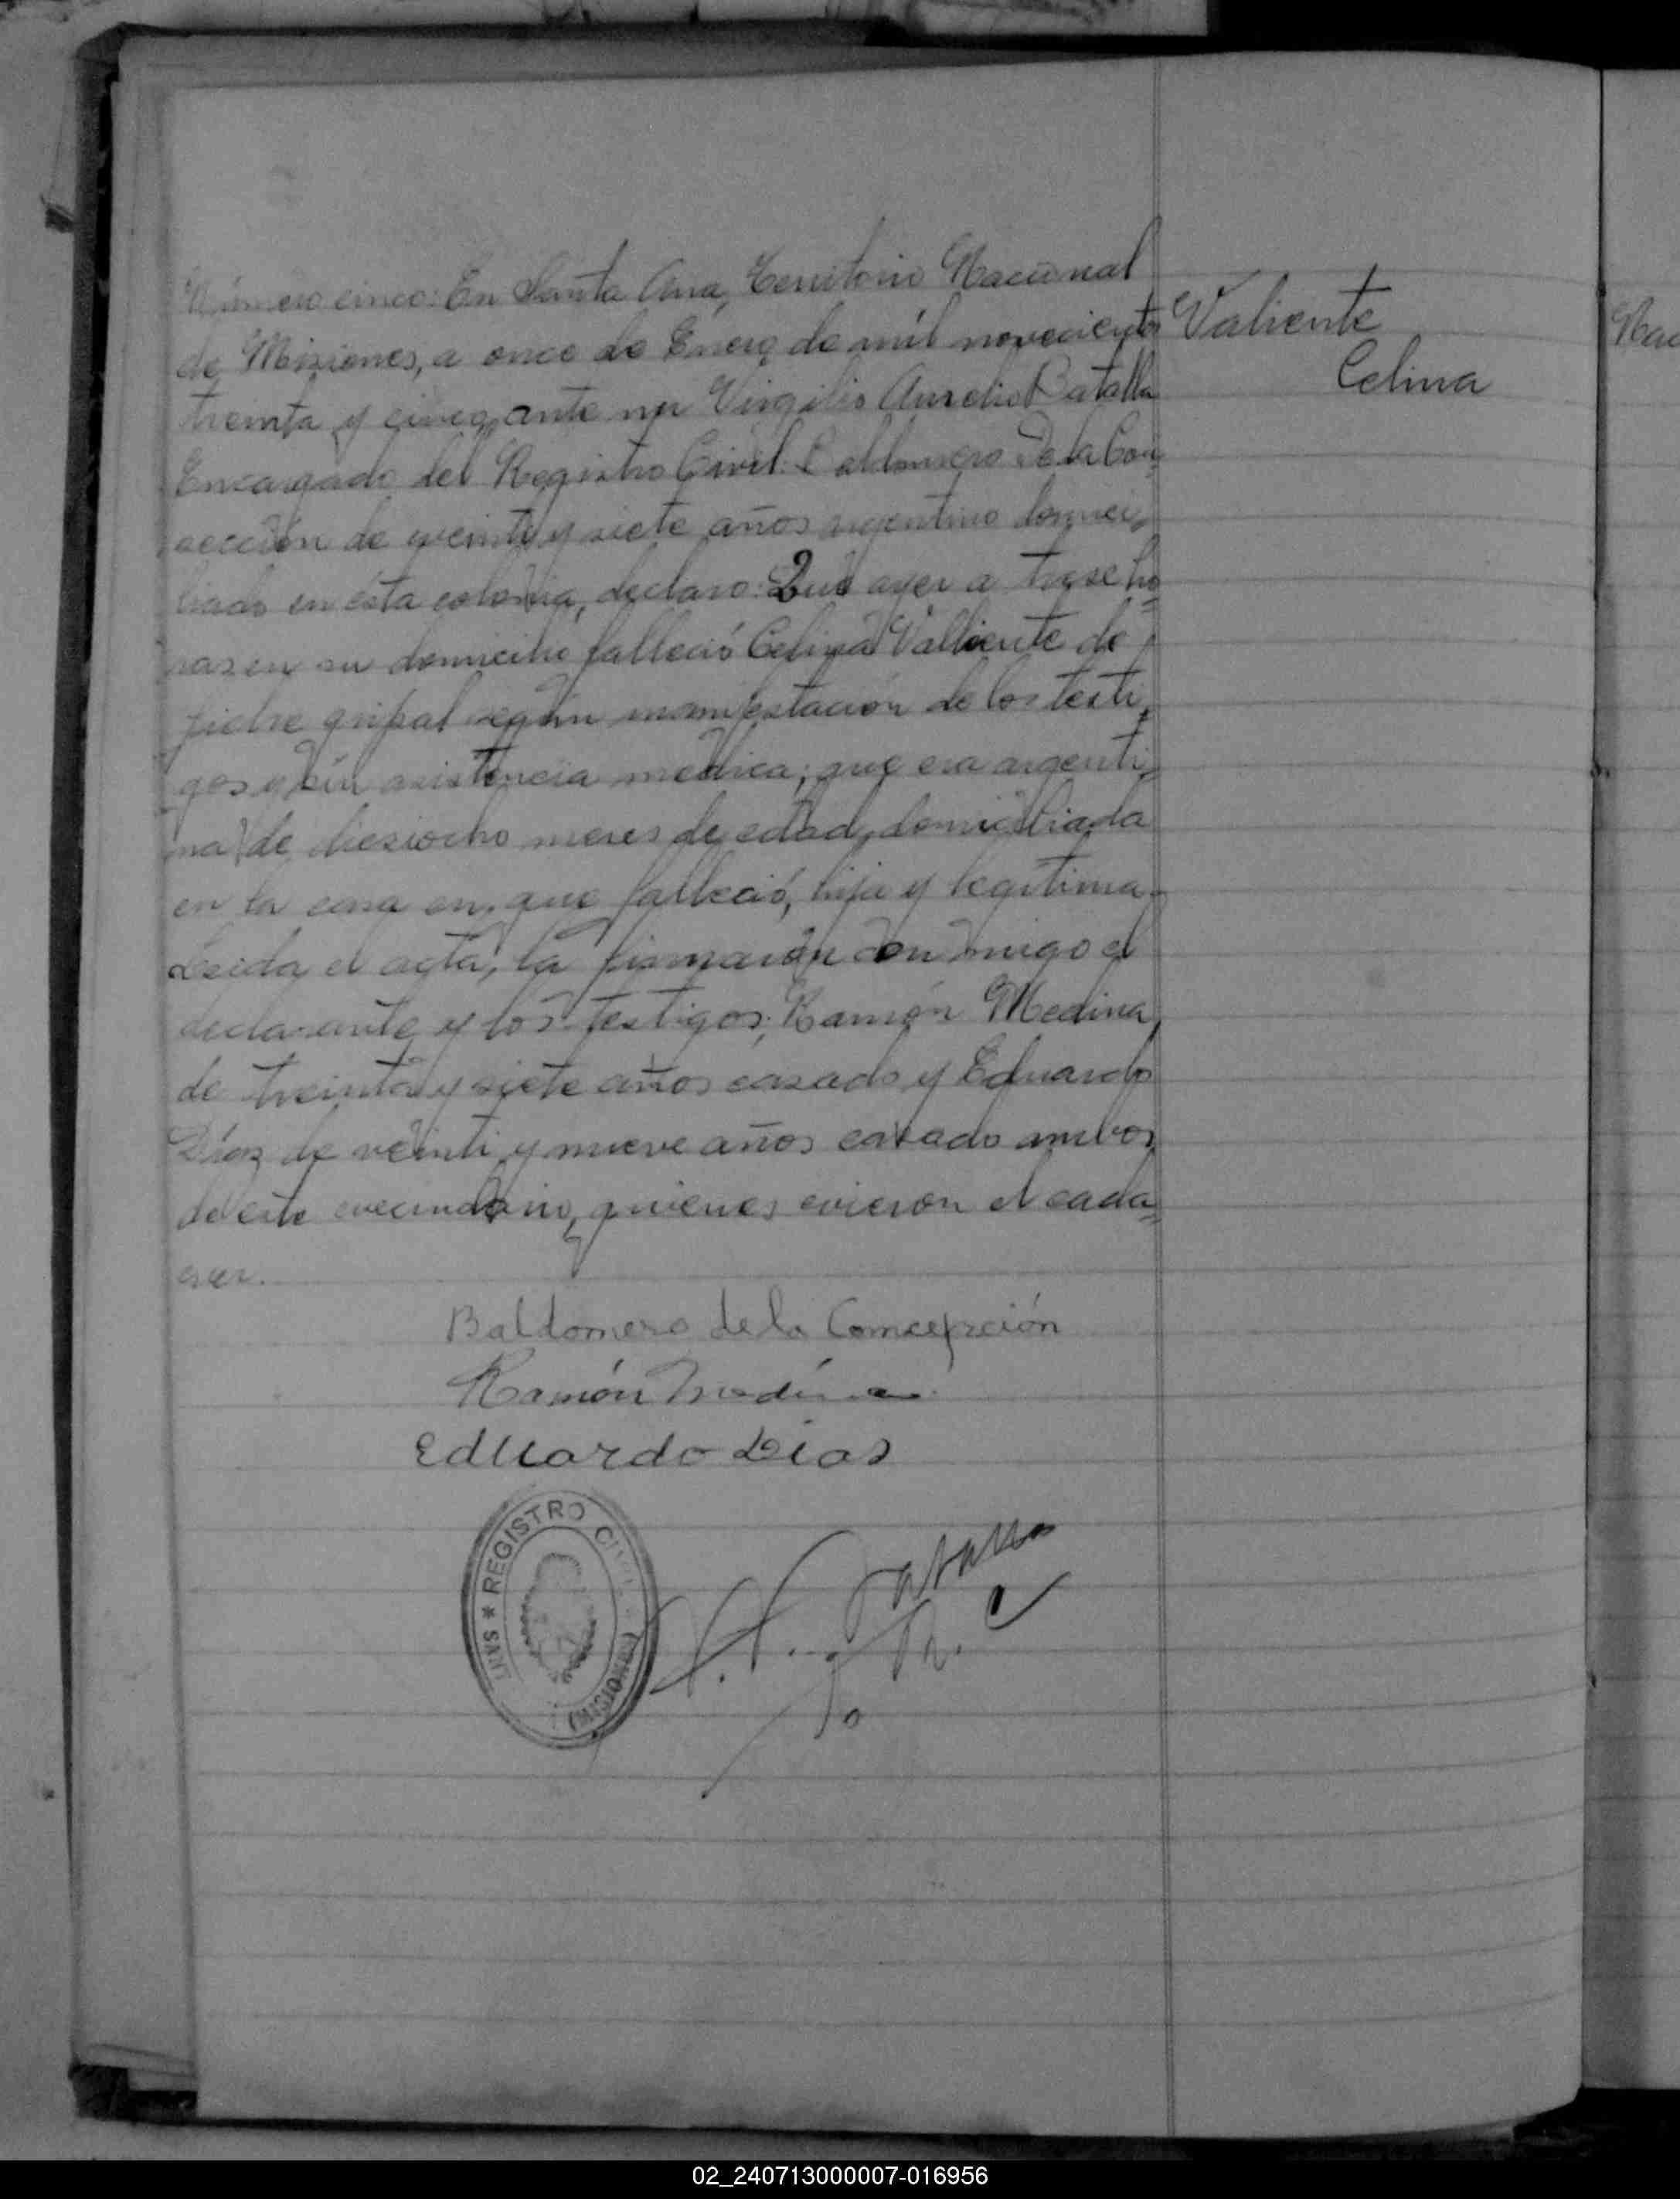 Número cinco: En Santa Ana, Territorio Nacional
de Misiones, a once de Enero de mil novecientos
treinta y cinco, ante mi Virgilio Aurelio Batalla
Encargado del Registro Civil: Baldomero De la Con=
cección de veinte y siete años argentino domici=
liado en ésta colonia, declaro: Que ayer a trese ho=
ras en su domicilio falleció Celina Valliente de
fiebre gripal según manifestación de los testi=
gos y sin asistencia médica; que era argenti=
na de diesiocho meses de edad, domiciliada
en la casa en que falleció, hija y legítima.
Leída el acta, la firmaron con migo el
declarante y los testigos; Ramón Medina
de treinta y siete años casado y Eduardo
Díaz de veinti y nueve años casado ambos
de este vecindario, quienes vieron el cada=
ver.
Valiente
Celina
Baldomero de la Concepción
Ramón Medina
Eduardo Dias
* REGISTRO CIVIL
(MISIONES)
Batalla